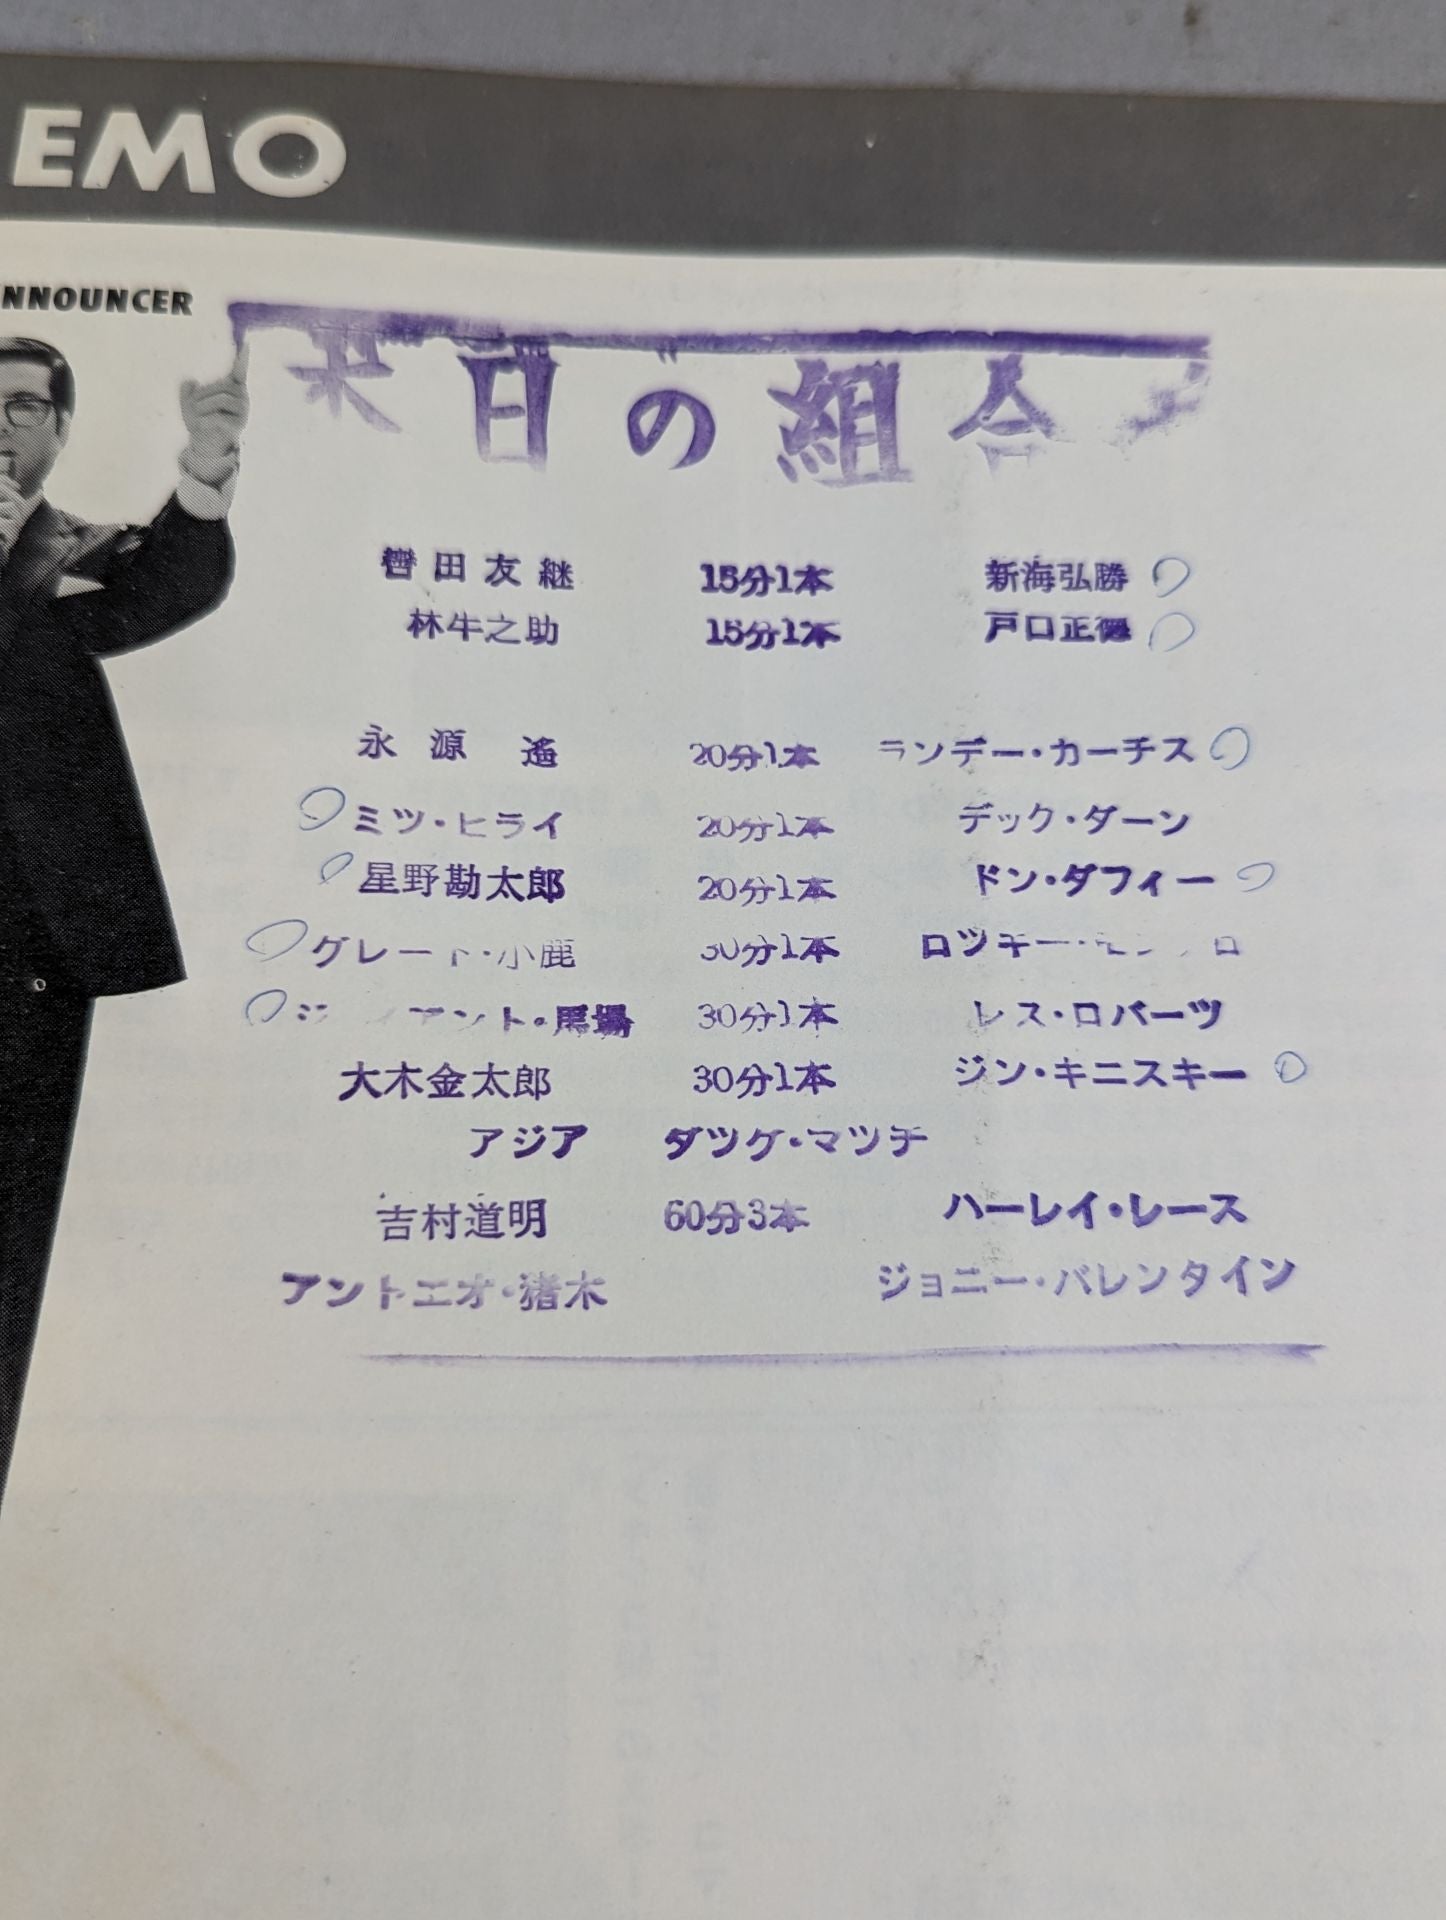 EMO
NNOUNCER
本日の組合せ
轡田友継 15分1本 新海弘勝
林牛之助 15分1本 戸口正徳
永源遙 20分1本 ランデー・カーチス
ミツ・ヒライ 20分1本 デック・ダーン
星野勘太郎 20分1本 ドン・ダフィー
グレート・小鹿 30分1本 ロッキー・モンテロ
ジャイアント・馬場 30分1本 レス・ロバーツ
大木金太郎 30分1本 ジン・キニスキー
アジア タツグ・マツチ
吉村道明 60分3本 ハーレイ・レース
アントニオ・猪木 ジョニー・バレンタイン